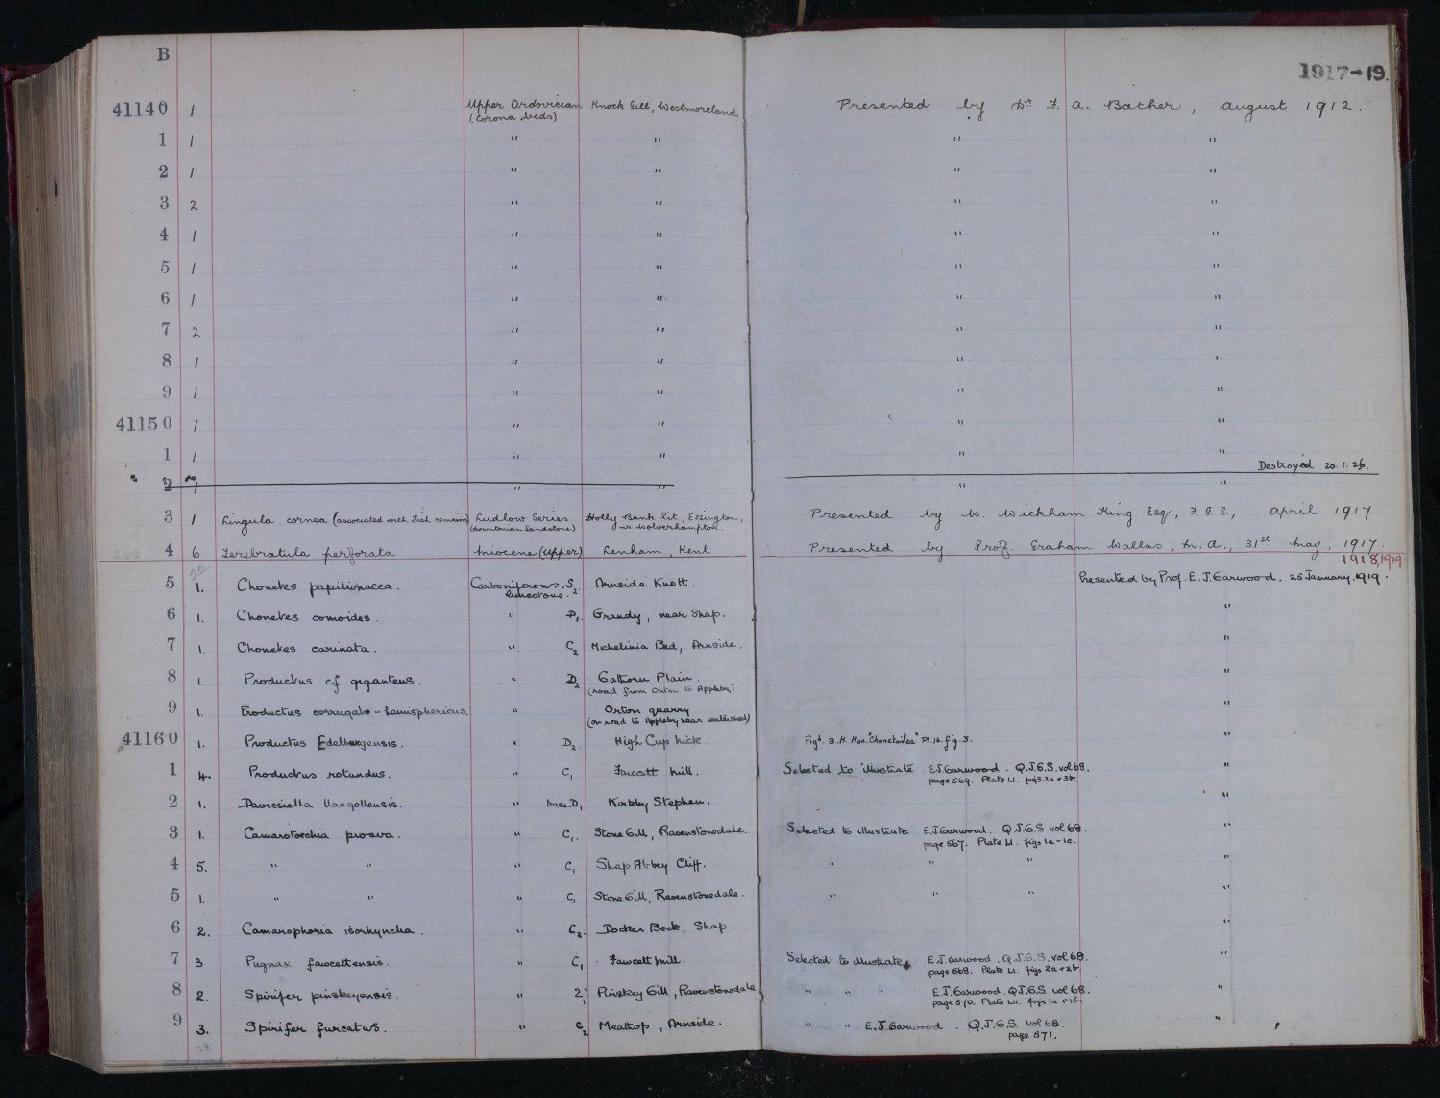 B
1917-19.
41140 1 Upper Ordovician Knock Gill, Westmoreland Presented by Dr F. A. Bather, August 1912.
(Corona beds)
1 1 " " " "
2 1 " " " "
3 2 " " " "
4 1 " " " "
5 1 " " " "
6 1 " " " "
7 2 " " " "
8 1 " " " "
9 1 " " " "
41150 1 " " " "
1 1 " " " "
Destroyed 20.1.26.
2 1 " " " "
3 1 Lingula cornea (associated with fish remains) Ludlow Series Holly Bank Pit, Essington, Presented by W. Wickham King Esq., F.G.S., April 1917
(Downtonian Sandstone) nr. Wolverhampton.
4 6 Terebratula perforata Miocene (Upper) Lenham, Kent Presented by Prof. Graham Wallas, M.A., 31st May, 1917.
1918, 1919
5 1. Chonetes papilionacea. Carboniferous S2. Arnside Knott. Presented by Prof. E. J. Garwood. 25 January 1919.
limestone.
6 1. Chonetes comoides. " D1. Grendy, near Shap. "
7 1. Chonetes carinata. " C2 Michelinia Bed, Arnside. "
8 1. Productus cf giganteus. " D2 Gathorn Plain. "
(road from Orton to Appleby)
9 1. Productus corrugato-hemisphericus " Orton quarry "
(on road to Appleby near watershed)
41160 1. Productus Edelburgensis. " D2. High Cup Nick. Figd. S.H. Mon. "Chonetoidea" Pl. 16. fig. 3. "
1 4. Productus rotundus. " C1 Fawcett Mill. Selected to illustrate E.J. Garwood. Q.J.G.S. vol 68. "
page 569. Plate LI. figs 3a & 3b.
2 1. Daviesiella llangollensis. " base D1 Kirkby Stephen. "
3 1. Camarotoechia proava. " C1. Stone Gill, Ravenstonedale. Selected to illustrate E.J. Garwood. Q.J.G.S vol 68. "
page 567. Plate LI. figs 1a-1c.
4 5. " " " C1 Shap Abbey Cliff. " " " "
5 1. " " " C1 Stone Gill, Ravenstonedale. " " " "
6 2. Camarophoria isorhyncha. " C2. Docker Beck, Shap "
7 3 Pugnax fawcettensis. " C1 Fawcett Mill. Selected to illustrate E.J. Garwood. Q.J.G.S. vol 68. "
page 568. Plate LI. figs 2a & 2b.
8 2. Spirifer pinskeyensis. " Z1 Pinskey Gill, Ravenstonedale " " E.J. Garwood. Q.J.G.S. vol 68. "
page 570. Plate
9 3. Spirifer furcatus. " C2 Meathop, Arnside. " " E.J. Garwood. Q.J.G.S. vol 68. "
page 571.